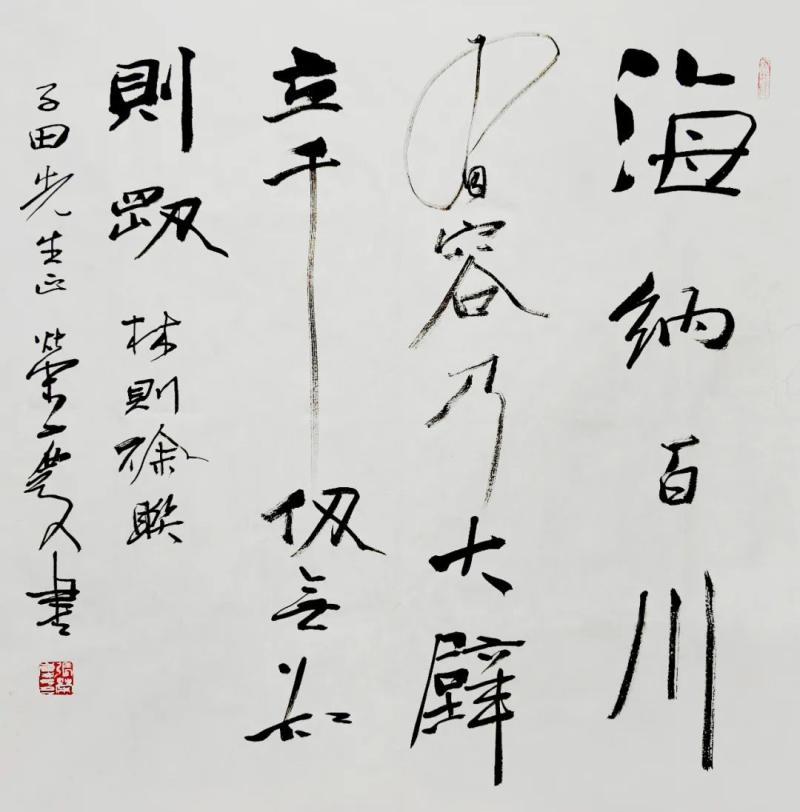 海納百川
有容乃大壁
立千仞无欲
則剛 林則徐聯
子田先生正 榮慶書